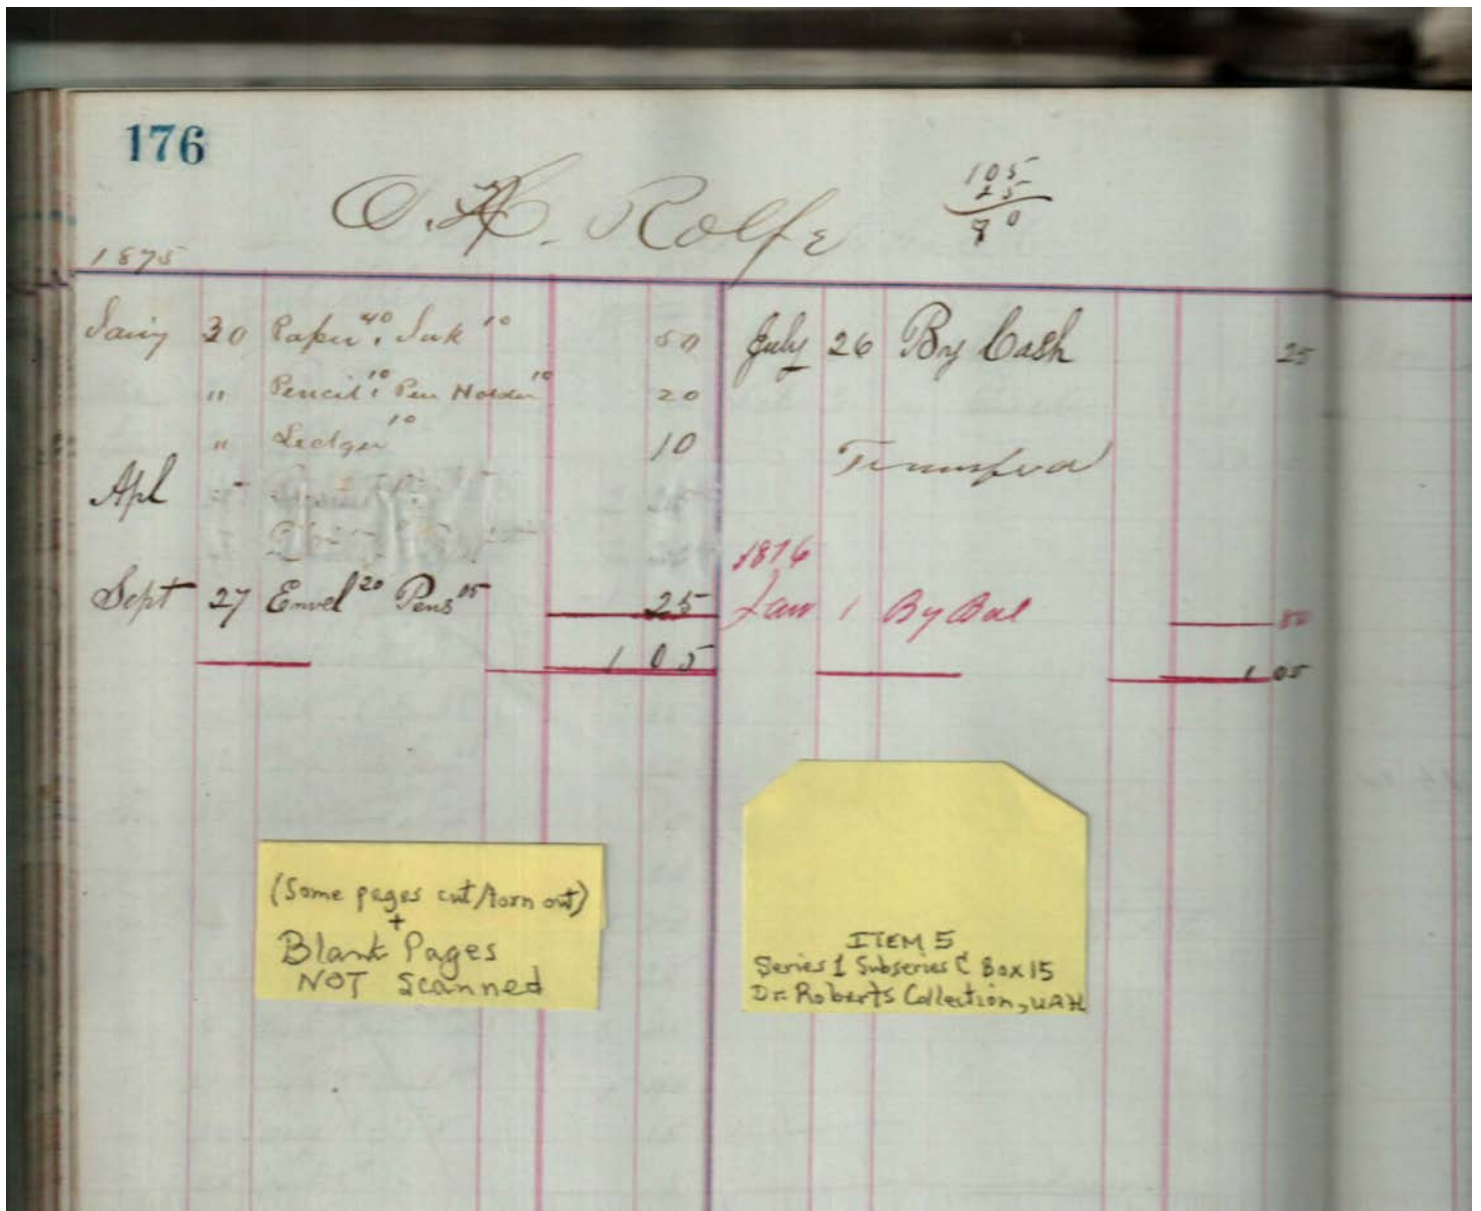 176
O. H. Rolfe
105
25
80
1875
Jany 30 Paper 40 Ink 10 50
" Pencil 10 Pen Holder 10 20
" Ledger 10 10
Apl
Sept 27 Envel 20 Pens 05 25
1 05
July 26 By Cash 25
Transferd
1876
Jan 1 By Bal 80
1 05
(Some pages cut/torn out)
+
Blank Pages
NOT Scanned
ITEM 5
Series 1 Subseries C Box 15
Dr. Roberts Collection, UAH